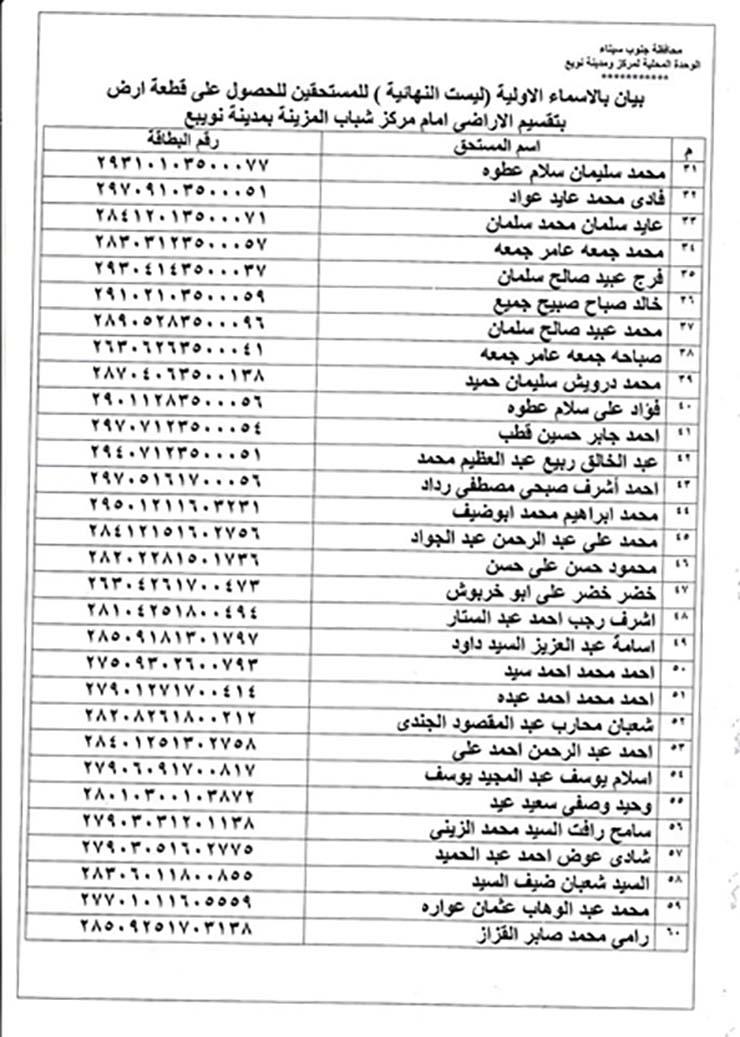 محافظة جنوب سيناء
الوحدة المحلية لمركز ومدينة نويبع
***********
بيان بالاسماء الاولية (ليست النهائية ) للمستحقين للحصول على قطعة ارض
بتقسيم الاراضى امام مركز شباب المزينة بمدينة نويبع
م اسم المستحق رقم البطاقة
٣١ محمد سليمان سلام عطوه ٢٩٣١٠١٠٣٥٠٠٠٧٧
٣٢ فادى محمد عايد عواد ٢٩٧٠٩١٠٣٥٠٠٠٥١
٣٣ عايد سلمان محمد سلمان ٢٨٤١٢٠١٣٥٠٠٠٧١
٣٤ محمد جمعه عامر جمعه ٢٨٣٠٣١٢٣٥٠٠٠٥٧
٣٥ فرج عبيد صالح سلمان ٢٩٣٠٤١٤٣٥٠٠٠٣٧
٣٦ خالد صباح صبيح جميع ٢٩١٠٢١٠٣٥٠٠٠٥٩
٣٧ محمد عبيد صالح سلمان ٢٨٩٠٥٢٨٣٥٠٠٠٩٦
٣٨ صباحه جمعه عامر جمعه ٢٦٣٠٦٢٦٣٥٠٠٠٤١
٣٩ محمد درويش سليمان حميد ٢٨٧٠٤٠٦٣٥٠٠١٣٨
٤٠ فؤاد على سلام عطوه ٢٩٠١١٢٨٣٥٠٠٠٥٦
٤١ احمد جابر حسين قطب ٢٩٧٠٧١٢٣٥٠٠٠٥٤
٤٢ عبد الخالق ربيع عبد العظيم محمد ٢٩٤٠٧١٢٣٥٠٠٠٥١
٤٣ احمد أشرف صبحى مصطفى رداد ٢٩٧٠٥١٦١٧٠٠٠٥٦
٤٤ محمد ابراهيم محمد ابوضيف ٢٩٥٠١٢١١٦٠٣٢٣١
٤٥ محمد على عبد الرحمن عبد الجواد ٢٨٤١٢١٥١٦٠٢٧٥٦
٤٦ محمود حسن على حسن ٢٨٢٠٢٢٨١٥٠١٧٣٦
٤٧ خضر خضر على ابو خربوش ٢٦٣٠٤٢٦١٧٠٠٤٧٣
٤٨ اشرف رجب احمد عبد الستار ٢٨١٠٤٢٥١٨٠٠٤٩٤
٤٩ اسامة عبد العزيز السيد داود ٢٨٥٠٩١٨١٣٠١٧٩٧
٥٠ احمد محمد احمد سيد ٢٧٥٠٩٣٠٢٦٠٠٧٩٣
٥١ احمد محمد احمد عبده ٢٧٩٠١٢٧١٧٠٠٤١٤
٥٢ شعبان محارب عبد المقصود الجندى ٢٨٢٠٨٢٦١٨٠٠٢١٢
٥٣ احمد عبد الرحمن احمد على ٢٨٤٠١٢٥١٣٠٢٧٥٨
٥٤ اسلام يوسف عبد المجيد يوسف ٢٧٩٠٦٠٩١٧٠٠٨١٧
٥٥ وحيد وصفى سعيد عيد ٢٨٠١٠٣٠٠١٠٣٨٧٢
٥٦ سامح رافت السيد محمد الزينى ٢٧٩٠٣٠٣١٢٠١١٣٨
٥٧ شادى عوض احمد عبد الحميد ٢٧٩٠٣٠٥١٦٠٢٧٧٥
٥٨ السيد شعبان ضيف السيد ٢٨٣٠٦٠١١٨٠٠٨٥٥
٥٩ محمد عبد الوهاب عثمان عواره ٢٧٧٠١٠١١٦٠٥٥٥٩
٦٠ رامى محمد صابر القزاز ٢٨٥٠٩٢٥١٧٠٣١٣٨